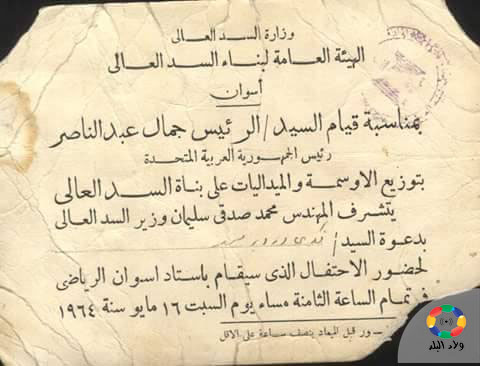 وزارة السد العالى
الهيئة العامة لبناء السد العالى
أسوان
بمناسبة قيام السيد/الرئيس جمال عبد الناصر
رئيس الجمهورية العربية المتحدة
بتوزيع الاوسمة والميداليات على بناة السد العالى
يتشرف المهندس محمد صدقى سليمان وزير السد العالى
بدعوة السيد/
لحضور الاحتفال الذى سيقام باستاد اسوان الرياضى
فى تمام الساعة الثامنة مساء يوم السبت ١٦ مايو سنة ١٩٦٤
قبل الميعاد بنصف ساعة على الاقل
ولاد البلد